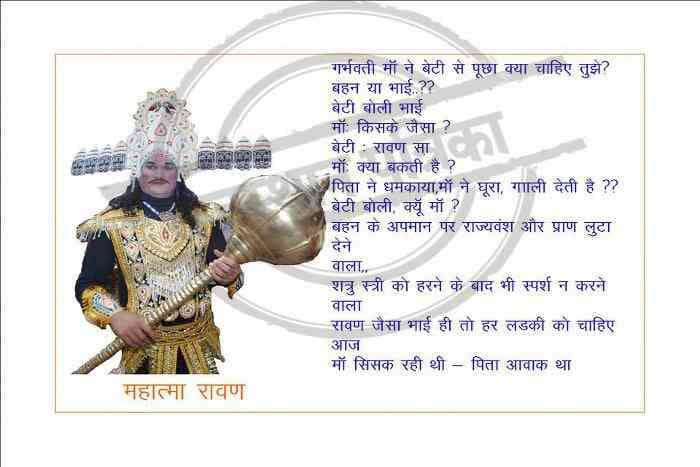 गर्भवती मॉ ने बेटी से पूछा क्या चाहिए तुझे?
बहन या भाई..??
बेटी बोली भाई
मॉः किसके जैसा ?
बेटी : रावण सा
मॉः क्या बकती है ?
पिता ने धमकाया,मॉ ने घूरा, गााली देती है ??
बेटी बोली, क्यूॅ मॉ ?
बहन के अपमान पर राज्यवंश और प्राण लुटा
देने
वाला,,
शत्रु स्त्री को हरने के बाद भी स्पर्श न करने
वाला
रावण जैसा भाई ही तो हर लडकी को चाहिए
आज
मॉ सिसक रही थी – पिता आवाक था
महात्मा रावण